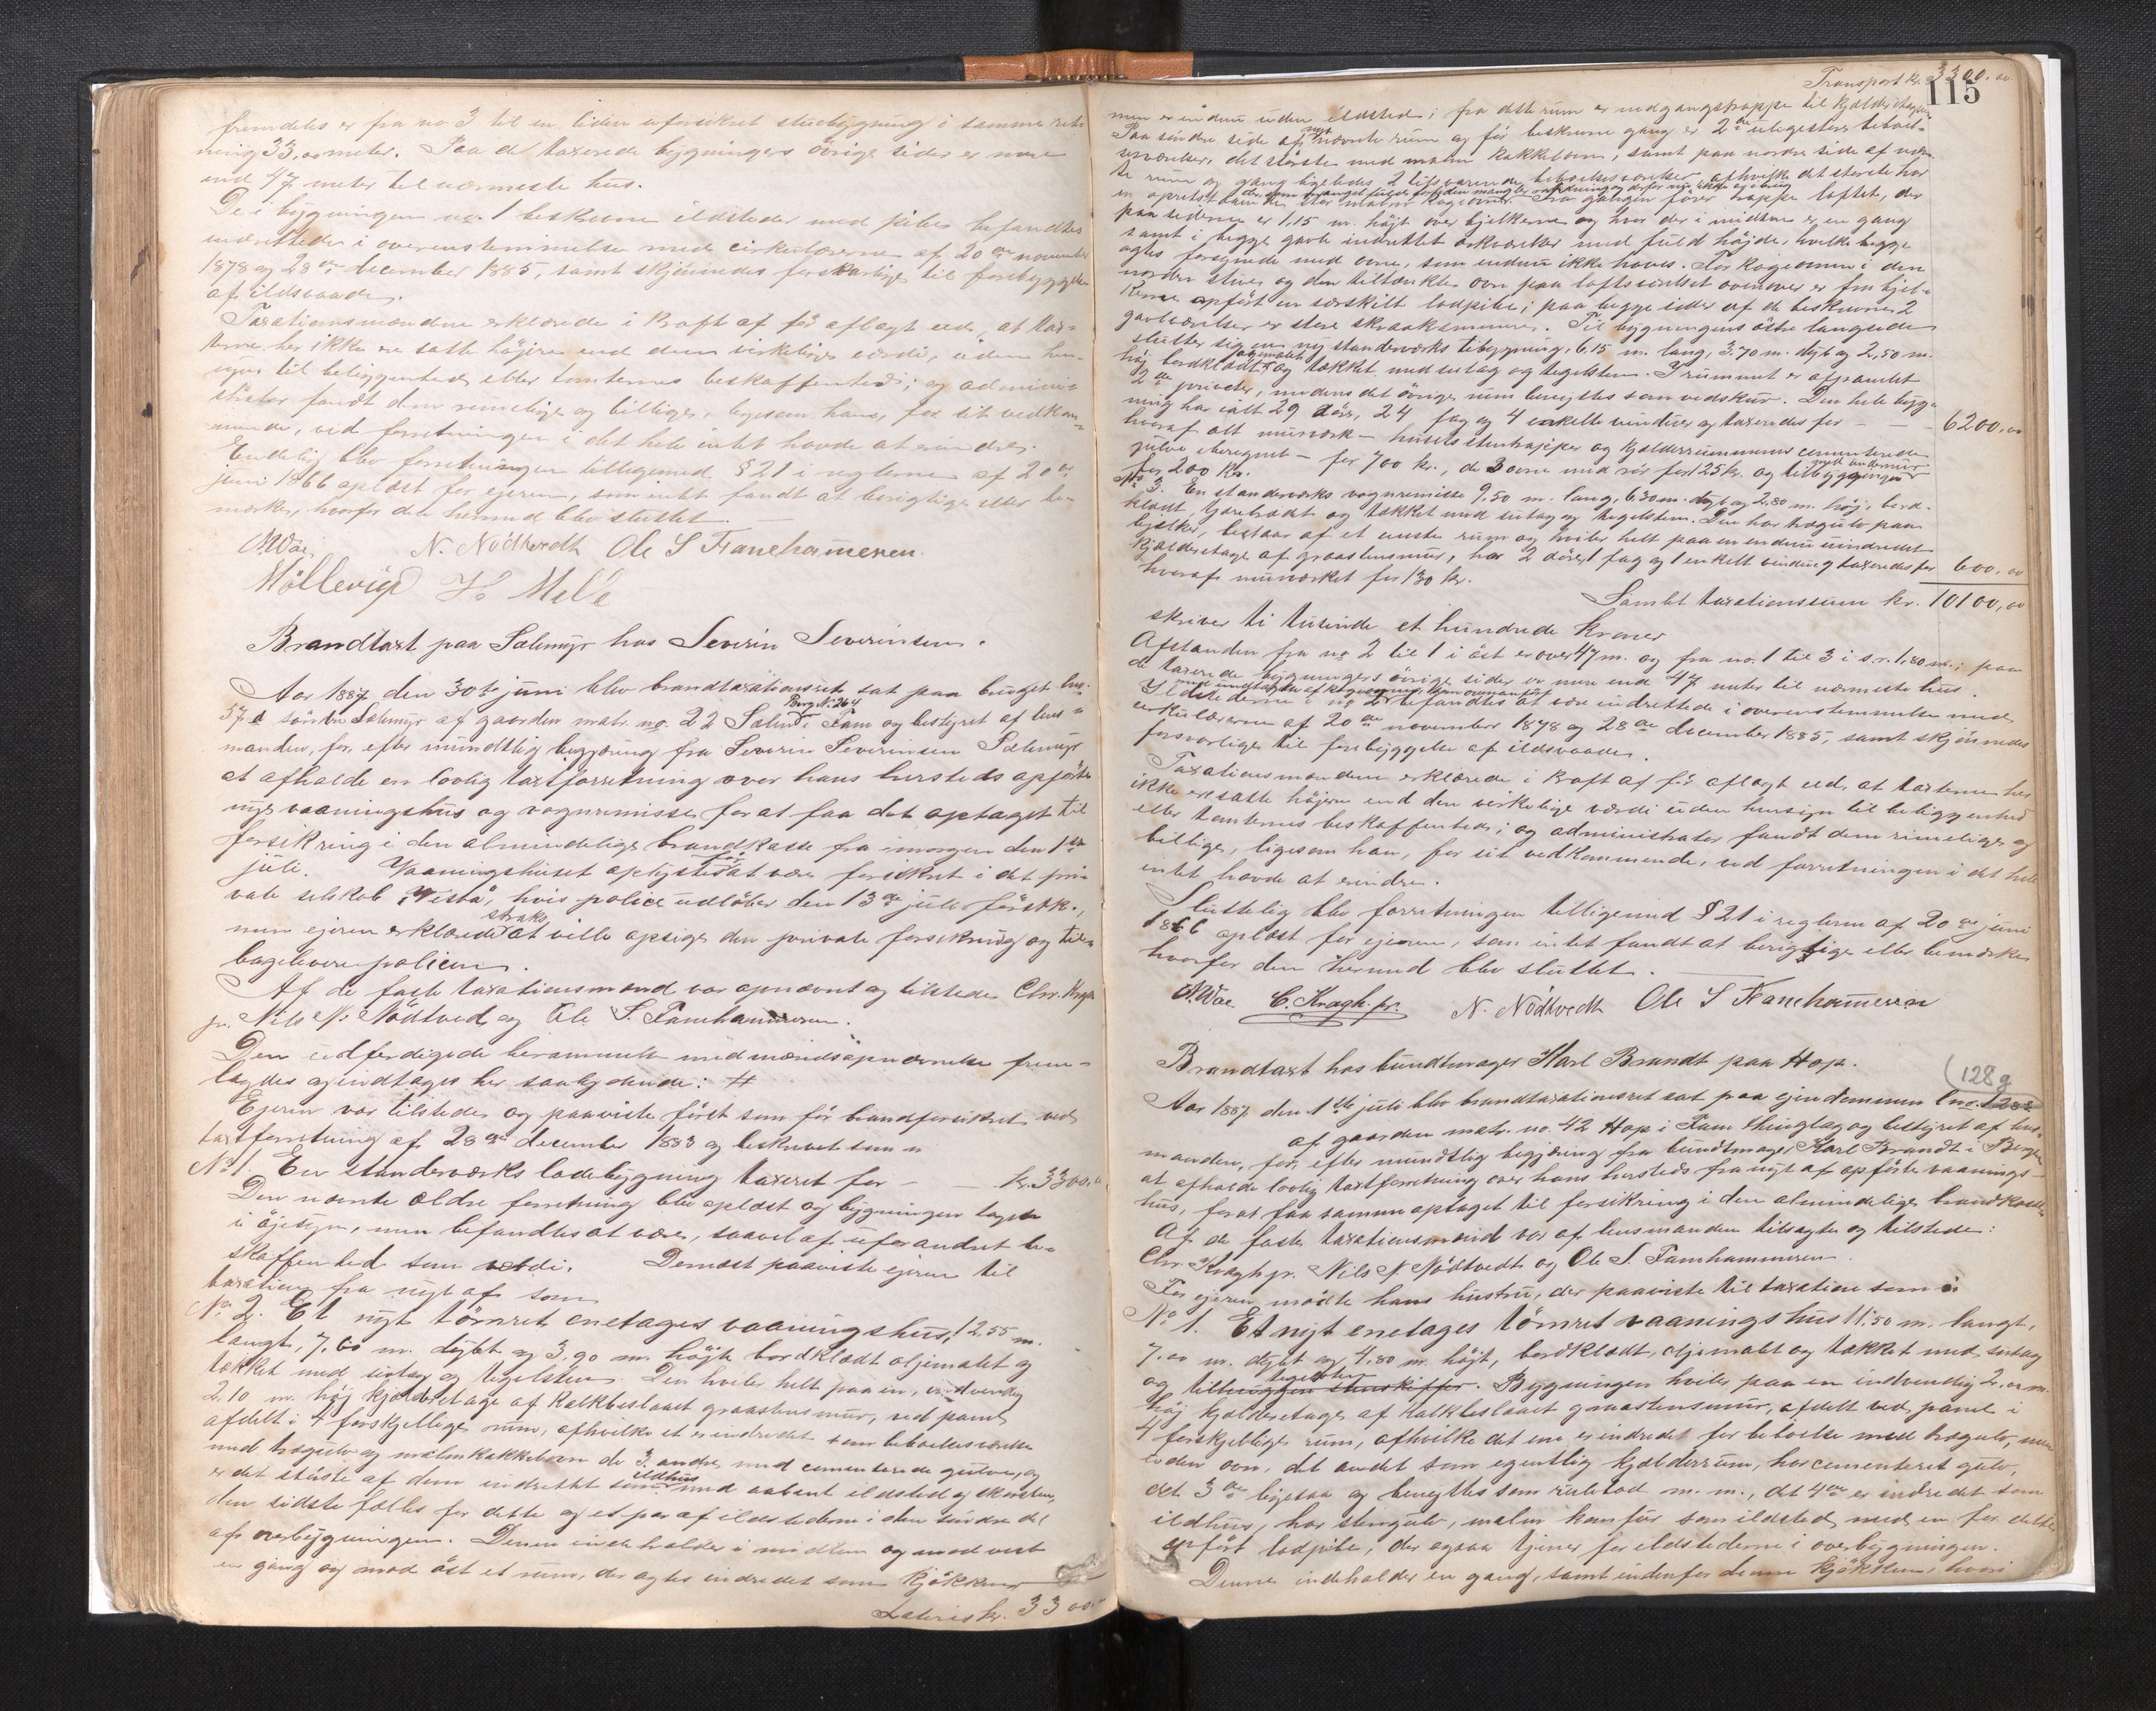 fremdeles er fra no 3 til en liden uforsikret stuebygning i samme ret-
ning 33,00 meter. Paa de taxerede bygningers övrige sider er mere
end 47 meter til nærmeste hus.
De i bygningen no. 1 beskrevne ildsteder med piber befandtes
indrettede i overenstemmelse med cirkulærerne af 20de november
1878 og 28de december 1885, samt skjönnedes forsvarlige til forebyggelse
af ildsvaade.
Taxationsmændene erklærede i kraft af för aflagt eed, at tax-
terne her ikke ere satte höjere end den virkelige værdi, uden hen-
syn til beliggenheden eller tomternes beskaffenhed; og admini-
strator fandt dem rimelige og billige, ligesom han, for sit vedkom-
mende, ved forretningen i det hele intet havde at erindre.
Endelig blev forretningen tilligemed § 21 i reglerne af 20de
juni 1866 oplæst for ejeren, som intet fandt at berigtige eller be-
mærke, hvorfor den hermed blev sluttet.
N. Nödtvedt Ole S Fanehammeren.
Möllerup H. Melle
Brandtaxt paa Sælemyr hos Severin Severinsen.
Aar 1887 den 30te juni blev brandtaxationsret sat paa bruget lno.
Brug N: 264
57 d söndre Sælemyr af gaarden matr. no. 22 Sælen i Fane og bestyret af lens-
manden, for, efter mundtlig begjæring fra Severin Severinsen Sælemyr
at afholde en lovlig taxtforretning over hans hersteds opförte
nye vaaningshus og vognremisse for at faa det optaget til
forsikring i den almindelige brandkasse fra imorgen den 1ste
juli. Vaaningshuset oplystes at være forsikret i det pri-
vate selskab "Vesta", hvis police udlöber den 13de juli förstk.,
straks
men ejeren erklærede at ville opsige den private forsikring og til-
bagelevere policen.
Af de faste taxationsmænd var opnævnt og tilstede Chr. Kragh
jr. Nils N. Nödtvedt og Ole S. Fanehammeren.
Den udferdigede berammelse med mændsopnævnelse frem-
lagdes og indtages her saalydende: #
Ejeren var tilstede og paaviste först som för brandforsikret ved
taxtforretning af 28de december 1883 og beskrevet som
No 1. En standerværks ladebygning taxeret for — — kr. 3300.
Den nævnte ældre forretning blev oplæst og bygningen tagen
i öjesyn, men befandtes at være, saavel af uforandret be-
skaffenhed som værdi. Dernæst paaviste ejeren til
taxation fra nyt af som
No. 2. Et nyt tömret enetages vaaningshus, 12.55 m.
langt, 7.60 m. dybt og 3.90 m. höjt bordklædt oljemalet og
tækket med sutag og tegelsten. Den hviler helt paa en, indvendig
2.10 m. höj kjælderetage af kalkbeslaaet graastensmur, ved panel
afdelt i 4 forskjellige rum, afhvilke et er indredet som beboelsesværelse
med trægulv og malmkakkelovn de 3 andre med cementerede gulve, og
ildhus
er det störste af dem indrettet som med aabent ildsted og skorsten,
den sidste fælles for dette og et par af ildstederne i den söndre del
af overbygningen. Denne indeholder i midten og mod vest
en gang og mod öst et rum, der agtes indredet som kjökken
Lateris kr. 3300.
Transport kr. 3300.00
115
men er endnu uden ildsted; fra dette rum er nedgangstrappe til kjælderetagen.
Paa söndre side af nævnte rum og för beskrevne gang er 2de uligestore beboel-
sesværelser, det störste med malm kakkelovn, samt paa nordre side af næv-
te rum og gang ligeledes 2 tilsvarende beboelsesværelser, afhvilke det störste har
Fra gangen förer trappe loftet, der
paa siderne er 1.15 m. höjt over bjelkerne og hvor der i midten er en gang
samt i begge gavle indrettet værelser med fuld höjde, hvilke begge
agtes forsynede med ovne, som endnu ikke haves. For kogeovnen i den
nordre stue og den tiltænkte ovn paa loftsværelset ovenover er fra kjel-
deren opfört en særskilt lodpibe; paa begge sider af de beskrevne 2
gavlværelser er store skraakammere. Til bygningens östre langside
slutter sig en ny standerværks tilbygning, 6.15 m. lang, 3.70 m. dyb og 2,50 m.
höj, bordklædt og tækket med sutag og tegelsten. I rummet er afpanelet
2de priveter, medens det övrige rum benyttes som vedskur. Den hele byg-
ning har ialt 29 dörr, 24 fag og 4 enkelte vinduer og taxeredes for — — 6200,00
hvoraf alt murværk — husets stentrapper og kjælderrummenes cementerede
gulve iberegnet — for 700 kr., de 3 ovne med rör for 125 kr. og tilbygningen
for 200 kr.
No 3. En standerværks vognremisse 9.50 m. lang, 6.30 m. dyb og 2,80 m. höj, bord-
klædt, og tækket med sutag og tegelsten. Den har trægulv paa
bjælker, bestaar af et eneste rum og hviler helt paa en endnu uindredet
kjælderetage af graastensmur, har 2 döre, 1 fag og 1 enkelt vindu og taxeredes for 600,00
hvoraf murværket for 130 kr.
Samlet taxationssum kr. 10100,00
skriver ti tusinde et hundrede kroner
Afstanden fra no 2 til 1 i öst er over 47 m. og fra no. 1 til 3 i s.v. 1.80 m.; paa
de taxerede bygningers övrige sider er mere end 47 meter til nærmeste hus.
Ildstederne i no 2 befandtes at være indrettede i overenstemmelse med
cirkulærerne af 20de november 1878 og 28de december 1885, samt skjönnedes
forsvarlige til forebyggelse af ildsvaade.
Taxationsmændene erklærede i kraft af för aflagt eed, at taxterne her
ikke ere satte höjere end den virkelige værdi uden hensyn til beliggenhed
eller tomternes beskaffenhed; og administrator fandt dem rimelige og
billige, ligesom han, for sit vedkommende, ved forretningen i det hele
intet havde at erindre.
Sluttelig blev forretningen tilligemed § 21 i reglerne af 20de juni
1866 oplæst for ejeren, som intet fandt at berigtige eller bemærke
hvorfor den hermed blev sluttet.
C. Kragh jr. N. Nödtvedt Ole S Fanehammeren
Brandtaxt hos bundtmager Karl Brandt paa Hop.
(128g
Aar 1887 den 1ste juli blev brandtaxationsret sat paa ejendommen lno. 128
af gaarden matr. no. 42 Hop i Fane thinglag og bestyret af lens-
manden, for, efter mundtlig begjæring fra bundtmager Karl Brandt i Bergen
at afholde lovlig taxtforretning over hans hersteds fra nyt af opförte vaanings-
hus, for at faa samme optaget til forsikring i den almindelige brandkasse.
Af de faste taxationsmænd var af lensmanden tilsagte og tilstede:
Chr. Kragh jr. Nils N. Nödtvedt og Ole S. Fanehammeren.
For ejeren mödte hans hustru, der paaviste til taxation som
No 1. Et nyt enetages tömret vaaningshus 11.50 m. langt,
7.00 m. dybt og 4.80 m. höjt, bordklædt, oljemalet og tækket med sutag
tegelsten
og tilhuggen stenskiffer. Bygningen hviler paa en indvendig 2.00 m.
höj kjælderetage af kalkbeslaaet graastensmur, afdelt ved panel i
4 forskjellige rum, afhvilke det ene er indredet for beboelse med trægulv, men
uden ovn, det andet som egentlig kjælderrum, har cementeret gulv,
det 3de ligesaa og benyttes som rullebod m. m., det 4de er indredet som
ildhus, har stengulv, malm komfur som ildsted med en for dette
opfört lodpibe, der ogsaa tjener for ildstederne i overbygningen.
Denne indeholder en gang, samt indenfor denne kjökken, hvori